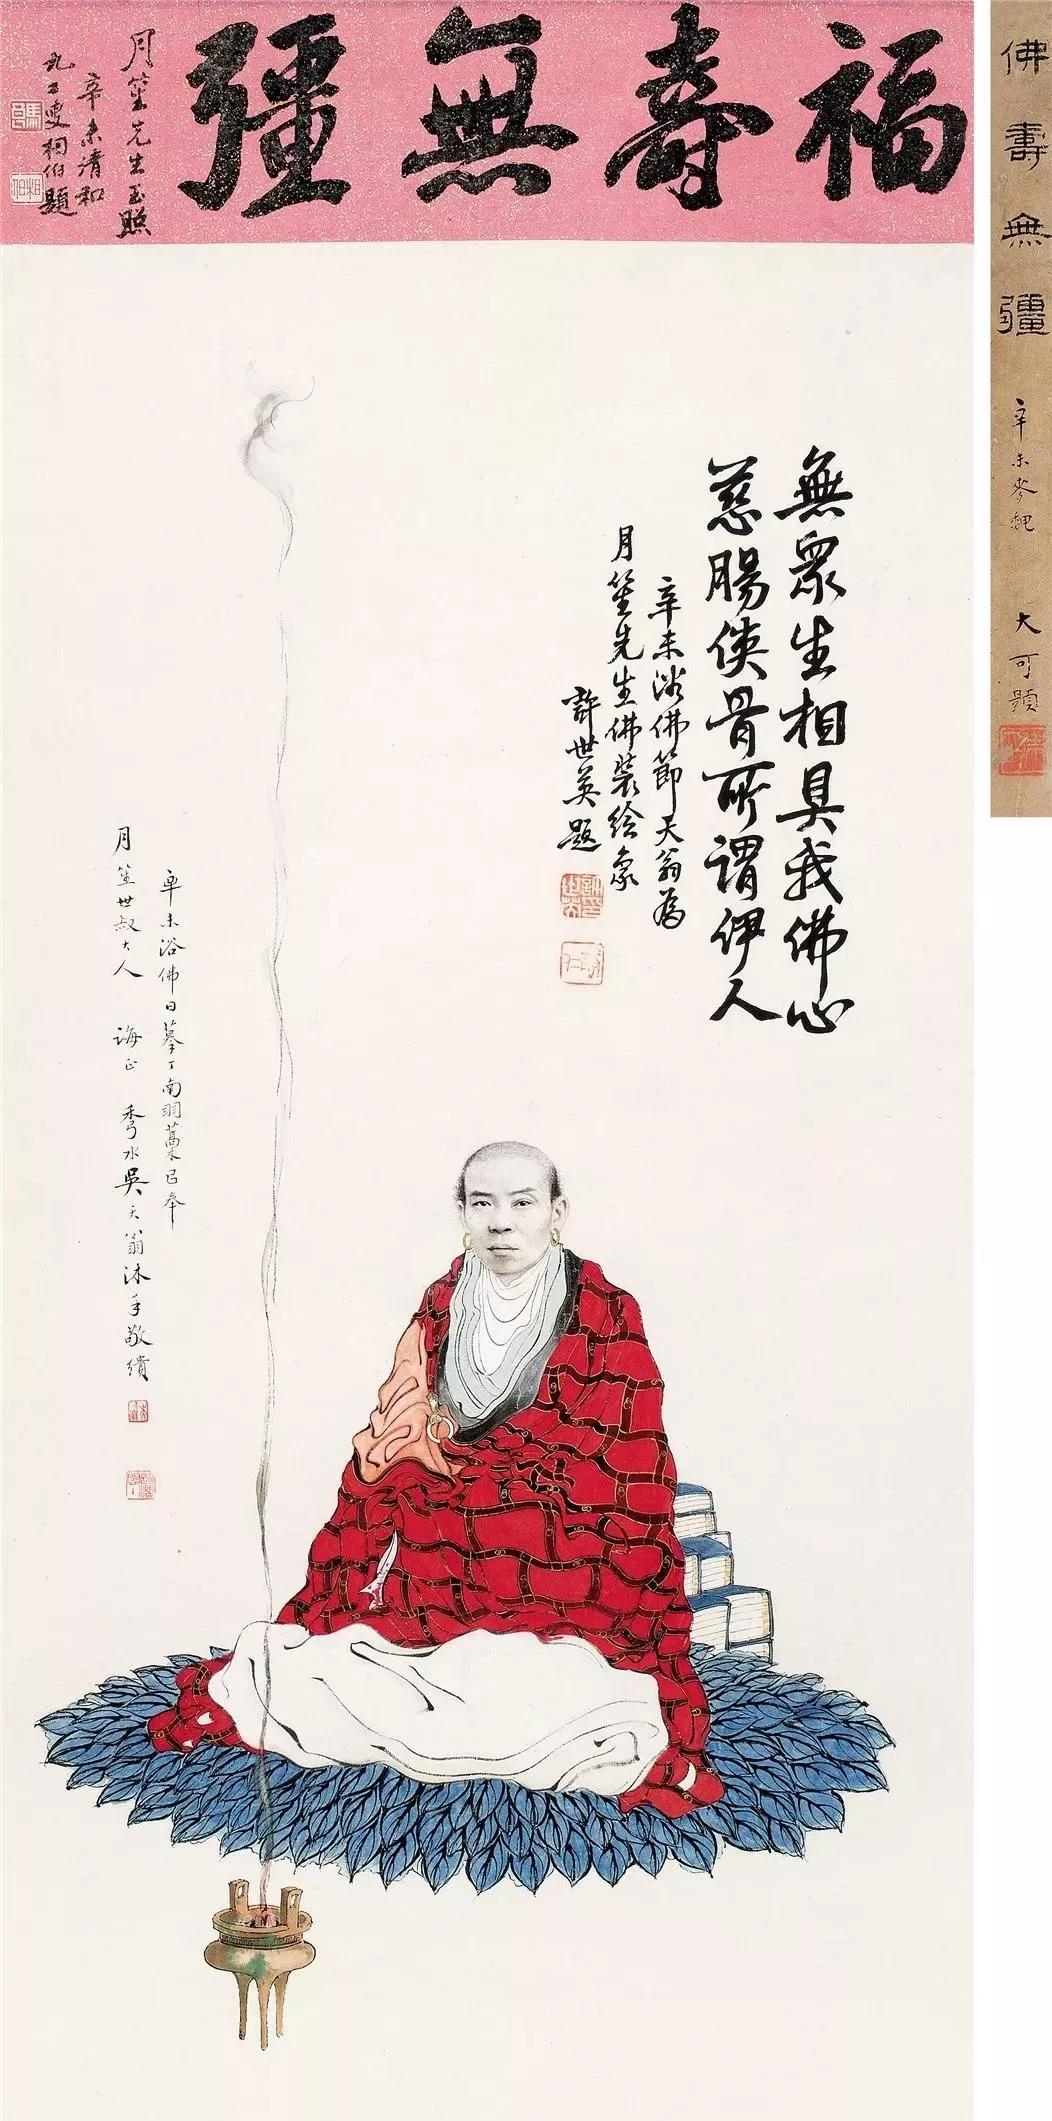 福壽無疆
月笙先生玉照
辛未清和
九二叟相伯題
佛壽無疆
辛未
大可題
無眾生相具我佛心
慈腸俠骨所謂伊人
辛未浴佛節天翁為
月笙先生佛裝繪象
許世英題
辛未浴佛日摹丁南羽藁呈奉
月笙世叔大人 誨正 秀水吳天翁沐手敬繢